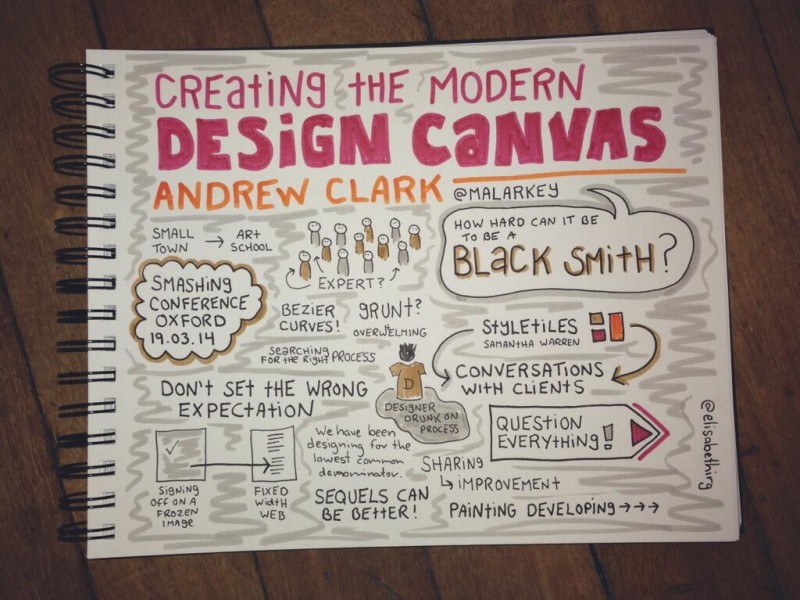 CREATING THE MODERN
DESIGN CANVAS
ANDREW CLARK @MALARKEY
SMALL
TOWN → ART
SCHOOL
EXPERT?
HOW HARD CAN IT BE
TO BE A
BLACK SMITH?
SMASHING
CONFERENCE
OXFORD
19.03.14
BEZIER
CURVES!
GRUNT?
OVERWELMING
SEARCHING
FOR THE RIGHT PROCESS
STYLETILES
SAMANTHA WARREN
CONVERSATIONS
WITH CLIENTS
D
DESIGNER
DRUNK ON
PROCESS
DON'T SET THE WRONG
EXPECTATION
QUESTION
EVERYTHING!
@elisabethirg
SIGNING
OFF ON A
FROZEN
IMAGE
FIXED
WIDTH
WEB
We have been
designing for the
lowest common
demominator.
SEQUELS CAN
BE BETTER!
SHARING
↳ IMPROVEMENT
PAINTING DEVELOPING →→→